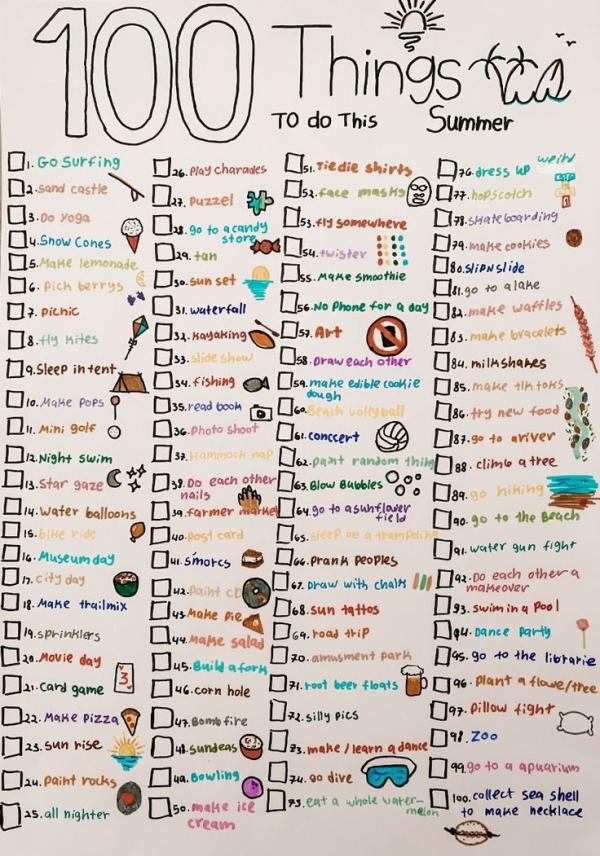 100 Things
TO do This Summer
1. Go Surfing
2. sand castle
3. Do yoga
4. Snow Cones
5. Make lemonade
6. Pick berrys
7. picnic
8. fly kites
9. Sleep in tent
10. Make Pops
11. Mini golf
12. Night swim
13. Star gaze
14. Water balloons
15. bike ride
16. Museum day
17. city day
18. Make trailmix
19. sprinklers
20. Movie day
21. Card game
3
22. Make pizza
23. sun rise
24. Paint rocks
25. all nighter
26. Play charades
27. Puzzel
28. go to a candy
store
29. tan
30. sun set
31. waterfall
32. kayaking
33. slide show
34. fishing
35. read book
36. Photo shoot
37. Hammock nap
38. Do each other
nails
39. farmer market
40. post card
41. s'morcs
42. Paint CD
43. Make Pie
44. Make salad
45. Build a fork
46. corn hole
47. Bomb fire
48. sundeas
49. Bowling
50. make ice
cream
51. Tie die shirts
52. face masks
53. fly somewhere
54. twister
55. Make smoothie
56. No Phone for a day
57. Art
58. Draw each other
59. make edible cookie
dough
60. Beach vollyball
61. conccert
62. paint random thing
63. Blow Bubbles
64. go to a sunflower
field
65. sleep on a trampoline
66. Prank peoples
67. Draw with chalk
68. sun tattos
69. road trip
70. amusment park
71. root beer floats
72. silly pics
73. make / learn a dance
74. go dive
75. eat a whole water-
melon
76. dress up weird
77. hopscotch
78. skateboarding
79. make cookies
80. slip n slide
81. go to a lake
82. make waffles
83. make bracelets
84. milkshakes
85. make tik toks
86. try new food
87. go to a river
88. climb a tree
89. go hiking
90. go to the Beach
91. water gun fight
92. Do each other a
makeover
93. swim in a pool
94. Dance party
95. go to the librarie
96. Plant a flowe/tree
97. Pillow fight
98. Zoo
99. go to a aquarium
100. collect sea shell
to make necklace